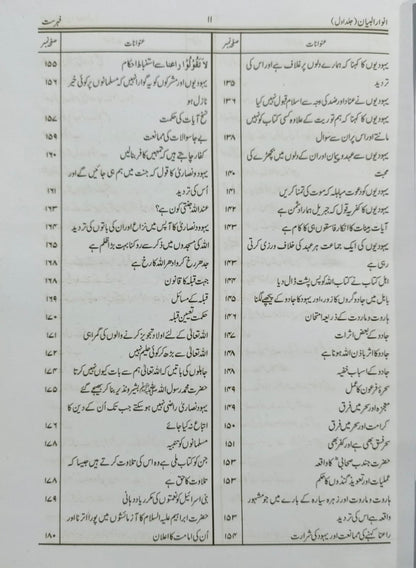 انوار البیان (جلد اول)
۱۱
فہرست
عنوانات
صفحہ نمبر
یہودیوں کا کہنا کہ ہمارے دلوں پر غلاف ہے اور اس کی
تردید ۱۳۵
یہودیوں نے عناد اور ضد کی وجہ سے اسلام قبول نہیں کیا ۱۳۶
یہودیوں کا کہنا کہ ہم توریت کے علاوہ کسی کتاب کو نہیں
مانتے اور اس پر ان سے سوال ۱۳۸
یہودیوں سے عہد و پیمان اور ان کے دلوں میں بچھڑے کی
محبت ۱۴۰
یہودیوں کو دعوت مباہلہ کہ موت کی تمنا کریں ۱۴۱
یہودیوں کا کفریہ قول کہ جبریل ہمارا دشمن ہے ۱۴۲
آیات بینات کا انکار فاسقوں ہی کا کام ہے ۱۴۳
یہودیوں کی ایک جماعت ہر عہد کی خلاف ورزی کرتی
رہی ہے ۱۴۳
اہل کتاب نے کتاب اللہ کو پس پشت ڈال دیا ۱۴۴
بابل میں جادو گروں کا زور، اور یہود کا جادو کے پیچھے لگنا ۱۴۵
ہاروت و ماروت کے ذریعہ امتحان ۱۴۶
جادو کے بعض اثرات ۱۴۷
جادو کا اثر باذن اللہ ہوتا ہے ۱۴۸
جادو کے اسباب خفیہ ۱۴۸
سحرۂ فرعون کا عمل ۱۴۹
معجزہ اور سحر میں فرق ۱۴۹
کرامت اور سحر میں فرق ۱۵۰
سحر فسق بھی ہے اور کفر بھی ۱۵۱
حضرت جندب صحابیؓ کا واقعہ ۱۵۳
عملیات اور تعویذ گنڈوں کا حکم ۱۵۳
ہاروت و ماروت اور زہرہ سیارہ کے بارے میں جو مشہور
واقعہ ہے اس کی تردید ۱۵۳
راعنا کہنے کی ممانعت اور یہود کی شرارت ۱۵۴
عنوانات
صفحہ نمبر
لَا تَقُوْلُوْا رَاعِنَا سے استنباط احکام ۱۵۵
یہودیوں اور مشرکوں کو یہ گوارا نہیں کہ مسلمانوں پر کوئی خیر
نازل ہو ۱۵۶
نسخ آیات کی حکمت ۱۵۷
بے جا سوالات کی ممانعت ۱۵۹
کفار چاہتے ہیں کہ تمہیں کافر بنالیں ۱۶۰
یہود و نصاریٰ کا قول کہ جنت میں ہم ہی جائیں گے اور
اُس کی تردید ۱۶۱
عند اللہ جنتی کون ہے؟ ۱۶۳
یہود و نصاریٰ کا آپس میں نزاع اور ان کی باتوں کی تردید ۱۶۳
اللہ کی مسجدوں میں ذکر سے روکنا بہت بڑا ظلم ہے ۱۶۵
جدھر رخ کرو ادھر اللہ کا رخ ہے ۱۶۸
جہت قبلہ کا قانون ۱۶۸
قبلہ کے مسائل ۱۶۹
حکمت تعیین قبلہ ۱۷۰
اللہ تعالیٰ کے لئے اولاد تجویز کرنے والوں کی گمراہی ۱۷۱
اللہ تعالیٰ سے بڑھ کر کوئی حلیم نہیں ۱۷۲
جاہلوں کی باتیں کہ اللہ تعالیٰ ہم سے بات کیوں نہیں کرتا ۱۷۳
حضرت محمد رسول اللہ ﷺ بشیر و نذیر بنا کر بھیجے گئے ۱۷۵
یہود و نصاریٰ راضی نہیں ہو سکتے جب تک اُن کے دین کا
اتباع نہ کیا جائے ۱۷۶
مسلمانوں کو تنبیہ ۱۷۸
جن کو کتاب ملی ہے وہ اس کی تلاوت کرتے ہیں جیسا کہ
تلاوت کا حق ہے ۱۷۸
بنی اسرائیل کو نعمتوں کی مکرر یاد دہانی ۱۷۹
حضرت ابراہیم علیہ السلام کا آزمائشوں میں پورا اترنا اور
اُن کی امامت کا اعلان ۱۸۰